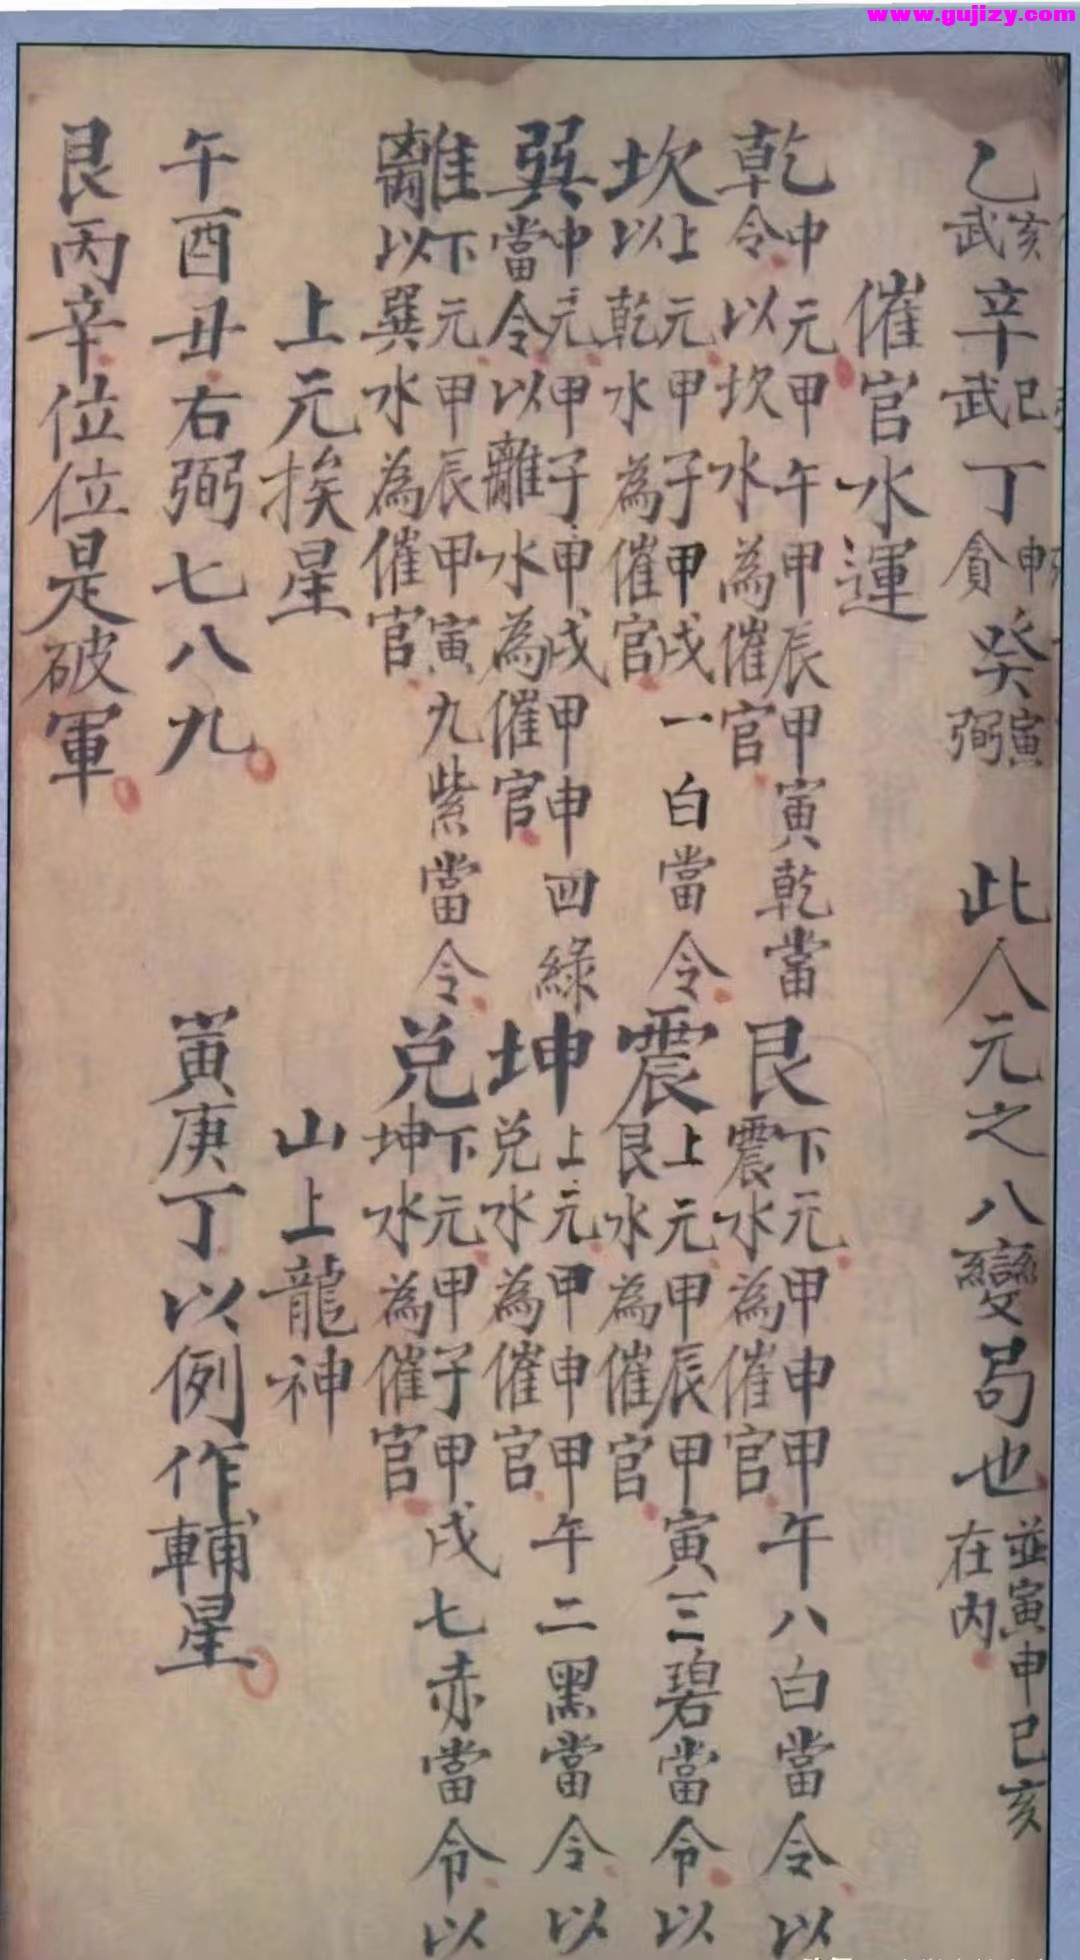 www.gujizy.com
乙亥武 辛巳武 丁申貪 癸寅弼 此人元之八變局也 並寅申巳亥在內
催官水運
乾 中元甲午甲辰甲寅乾當令以坎水為催官
艮 下元甲申甲午八白當令以震水為催官
坎 上元甲子甲戌一白當令以乾水為催官
震 上元甲辰甲寅三碧當令以艮水為催官
巽 中元甲子甲戌甲申四綠當令以離水為催官
坤 上元甲申甲午二黑當令以兌水為催官
離 下元甲辰甲寅九紫當令以巽水為催官
兌 下元甲子甲戌七赤當令以坤水為催官
上元挨星 山上龍神
午酉丑右弼七八九 寅庚丁以例作輔星
艮丙辛位位是破軍